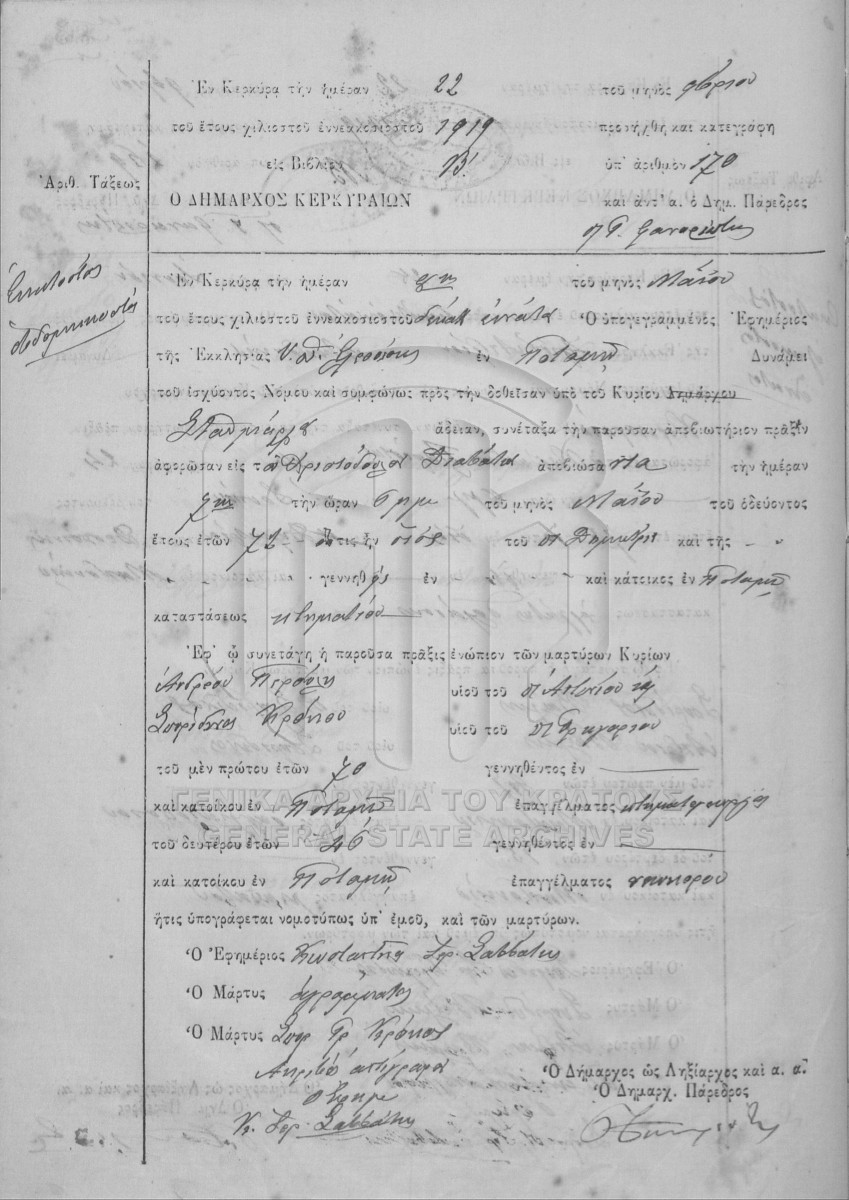 Ἐν Κερκύρᾳ τὴν ἡμέραν 22 τοῦ μηνὸς
τοῦ ἔτους χιλιοστοῦ ἐννεακοσιοστοῦ 1919 προσήχθη καὶ κατεγράφη
εἰς Βιβλίον Β! ὑπ' ἀριθμὸν 170
Ἀριθ. Τάξεως
Ο ΔΗΜΑΡΧΟΣ ΚΕΡΚΥΡΑΙΩΝ καὶ ἀντ' α. ὁ Δημ. Πάρεδρος
Ἑκατοστὸς
ἑβδομηκοστὸς
Ἐν Κερκύρᾳ τὴν ἡμέραν τοῦ μηνὸς Μαΐου
τοῦ ἔτους χιλιοστοῦ ἐννεακοσιοστοῦ δεκάτ ἐννάτου Ὁ ὑπογεγραμμένος Ἐφημέριος
τῆς Ἐκκλησίας Υ. Θ. ἐν Ποταμῷ Δυνάμει
τοῦ ἰσχύοντος Νόμου καὶ συμφώνως πρὸς τὴν δοθεῖσαν ὑπὸ τοῦ Κυρίου Δημάρχου
Σταθμάρχου ἄδειαν, συνέταξα τὴν παροῦσαν ἀποβιωτήριον πρᾶξιν
ἀφορῶσαν εἰς τὸν Χριστόδουλον ἀποβιώσαντα τὴν ἡμέραν
7ην τὴν ὥραν 6 μμ τοῦ μηνὸς Μαΐου τοῦ ὁδεύοντος
ἔτους ἐτῶν 72 ὅστις ἦν υἱὸς τοῦ π Δημητρίου καὶ τῆς - "
" " " γεννηθεὶς ἐν " " " καὶ κάτοικος ἐν Ποταμῷ
καταστάσεως κτηματίου
Ἐφ' ᾧ συνετάγη ἡ παροῦσα πρᾶξις ἐνώπιον τῶν μαρτύρων Κυρίων
Ἀνδρέου υἱοῦ τοῦ π Ἀντωνίου
Σπυρίδωνος υἱοῦ τοῦ π Γρηγορίου
τοῦ μὲν πρώτου ἐτῶν 70 γεννηθέντος ἐν
καὶ κατοίκου ἐν Ποταμῷ ἐπαγγέλματος
ΓΕΝΙΚΑ ΑΡΧΕΙΑ ΤΟΥ ΚΡΑΤΟΥΣ
GENERAL STATE ARCHIVES
τοῦ δευτέρου ἐτῶν 46 γεννηθέντος ἐν
καὶ κατοίκου ἐν Ποταμῷ ἐπαγγέλματος
ἥτις ὑπογράφεται νομοτύπως ὑπ' ἐμοῦ, καὶ τῶν μαρτύρων.
Ὁ Ἐφημέριος Κωσταντῖνος Ἱερ. Σαββάτης
Ὁ Μάρτυς ἀγράμματος
Ὁ Μάρτυς Σπυρ Γρ
Ἀκριβὲς ἀντίγραφον
Ὁ Δήμαρχος ὡς Ληξίαρχος καὶ α. α.
Ὁ Δημαρχ. Πάρεδρος
Ὁ Ἐφημ
Κ. Ἱερ. Σαββάτης